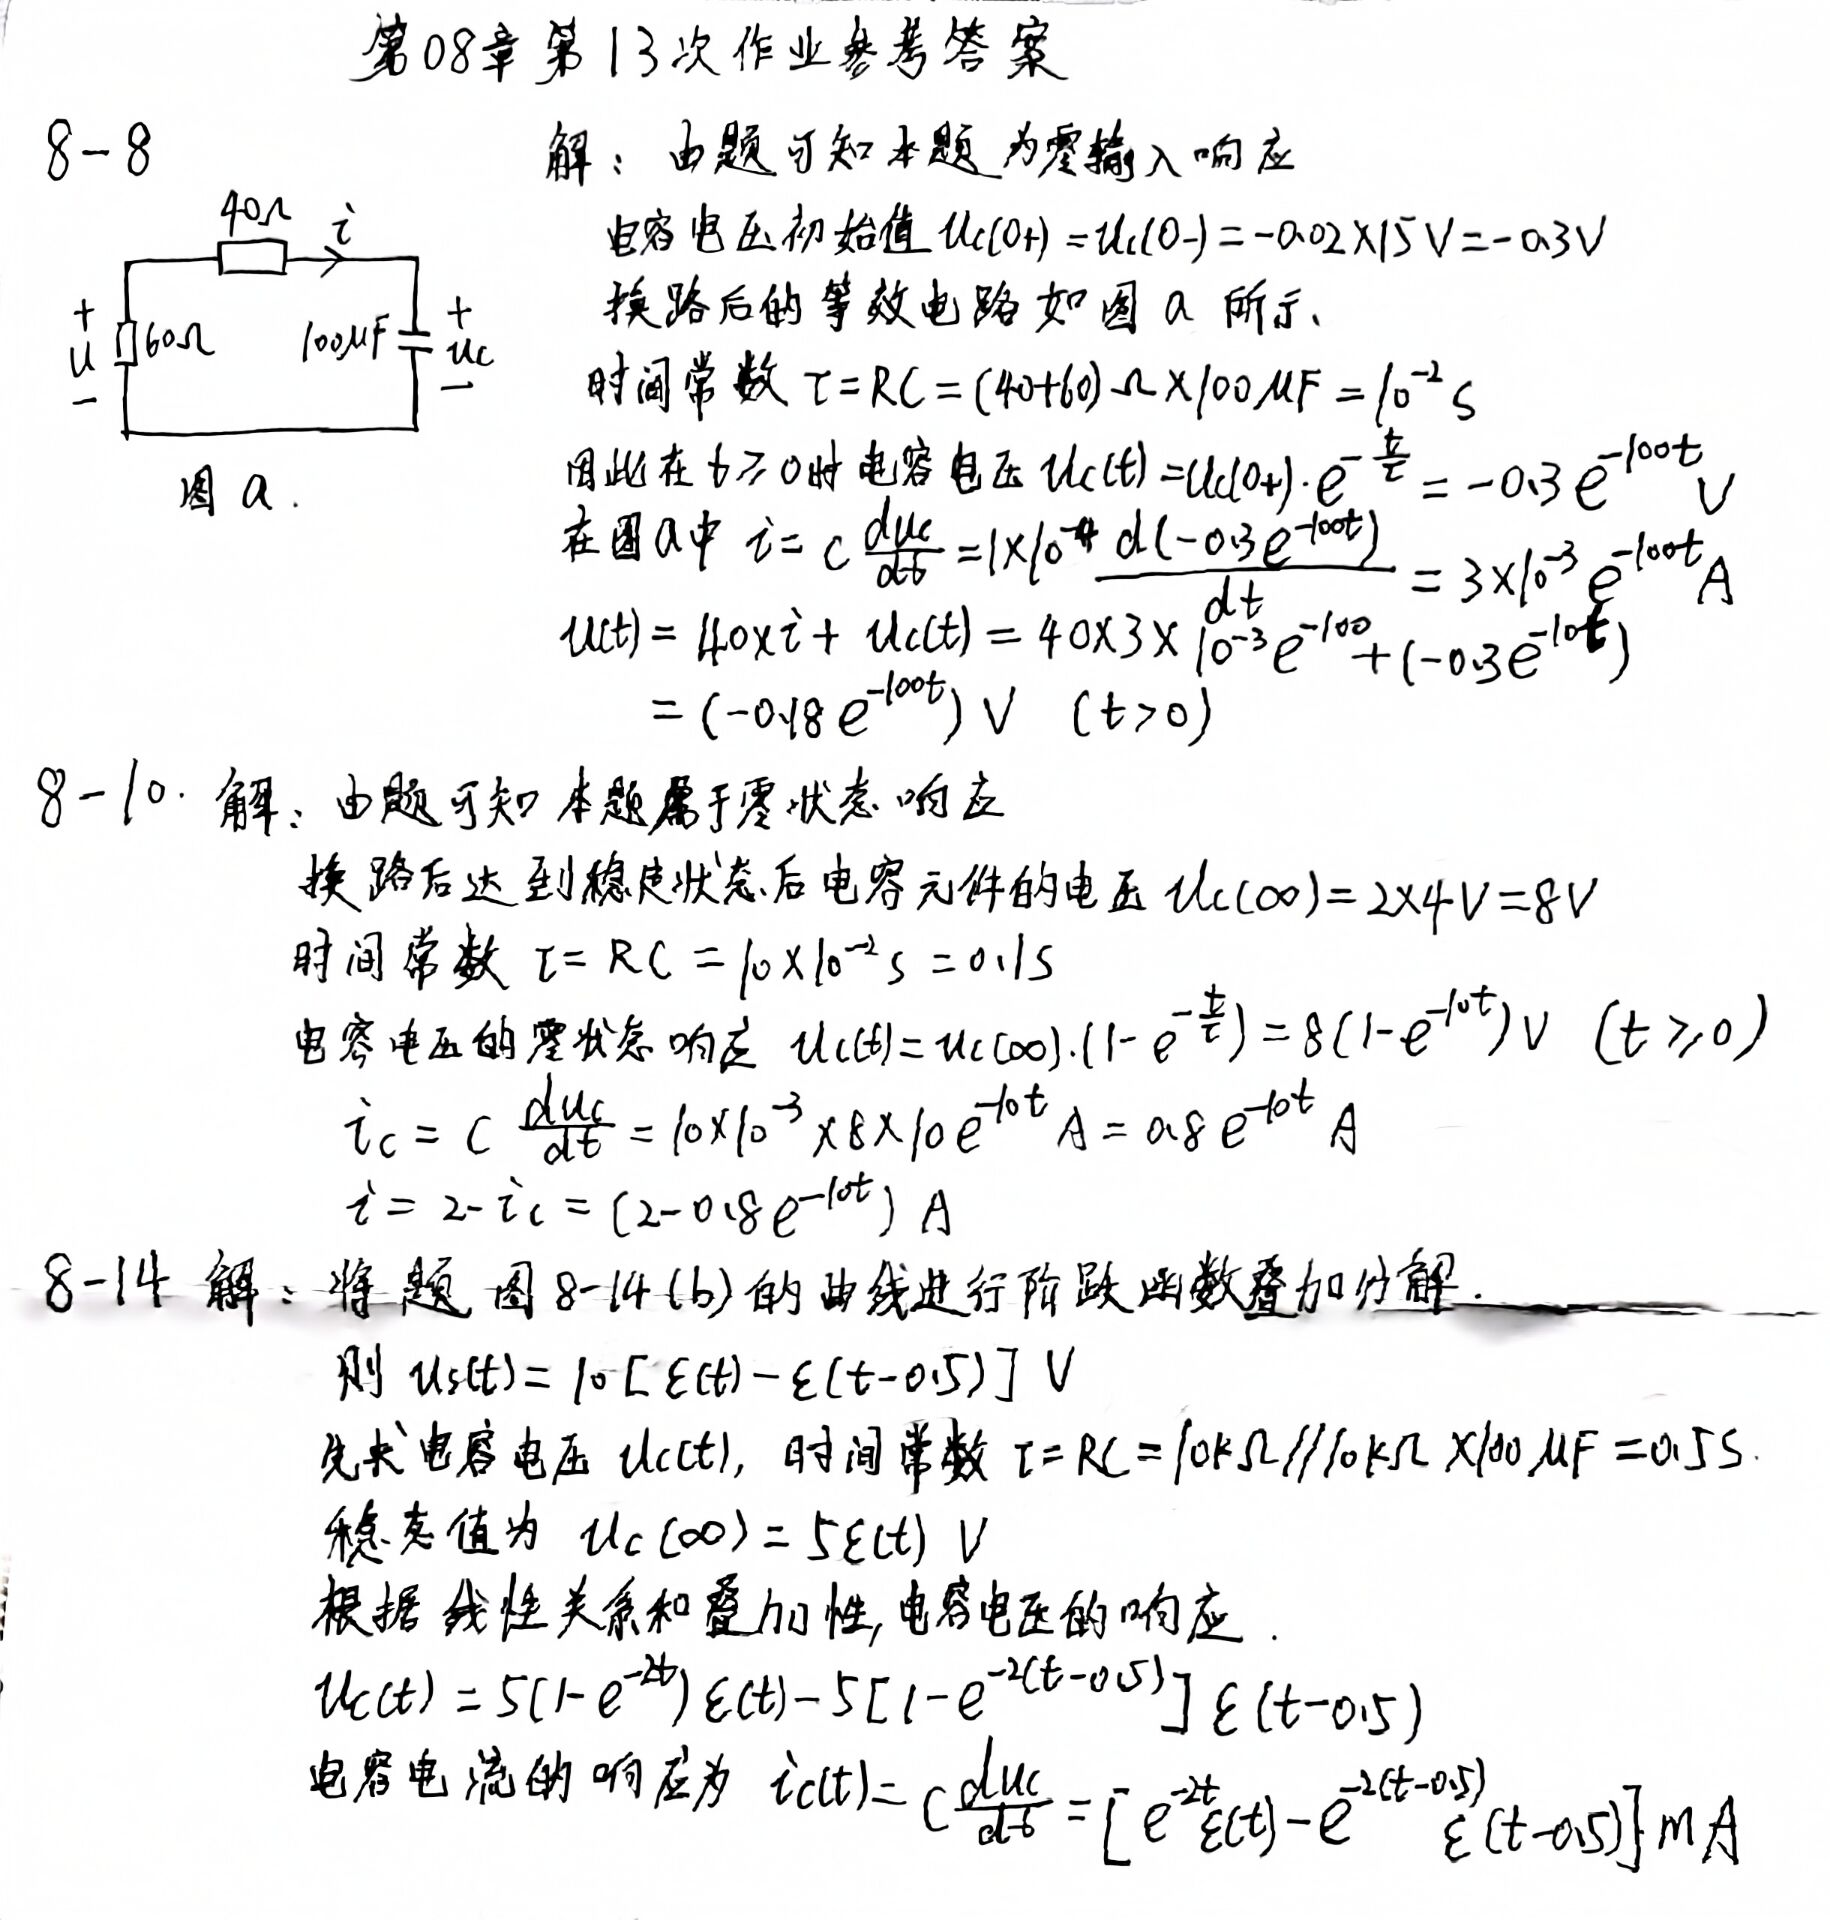 第08章第13次作业参考答案
8-8
解：由题可知本题为零输入响应
40Ω i
+ u - 60Ω 100μF + uc -
图a.
电容电压初始值 uc(0+)=uc(0-)=-0.02×15V=-0.3V
换路后的等效电路如图a所示、
时间常数 τ=RC=(40+60)Ω×100μF=10⁻² s
因此在t≥0时电容电压 uc(t)=uc(0+)·e^(-t/τ)=-0.3e^(-100t) V
在图a中 i=C duc/dt=1×10⁻⁴ d(-0.3e^(-100t))/dt=3×10⁻³ e^(-100t) A
u(t)=40×i+uc(t)=40×3×10⁻³e^(-100)+(-0.3e^(-10t))
=(-0.18e^(-100t)) V (t>0)
8-10. 解：由题可知本题属于零状态响应
换路后达到稳定状态后电容元件的电压 uc(∞)=2×4V=8V
时间常数 τ=RC=10×10⁻² s=0.1s
电容电压的零状态响应 uc(t)=uc(∞)·(1-e^(-t/τ))=8(1-e^(-10t)) V (t≥0)
ic=C duc/dt=10×10⁻³×8×10e^(-10t) A=0.8e^(-10t) A
i=2-ic=(2-0.8e^(-10t)) A
8-14 解：将题图8-14(b)的曲线进行阶跃函数叠加分解.
则 us(t)=10[ε(t)-ε(t-0.5)] V
先求电容电压 uc(t), 时间常数 τ=RC=10kΩ//10kΩ×100μF=0.5s.
稳态值为 uc(∞)=5ε(t) V
根据线性关系和叠加性,电容电压的响应.
uc(t)=5(1-e^(-2t))ε(t)-5[1-e^(-2(t-0.5))]ε(t-0.5)
电容电流的响应为 ic(t)=C duc/dt=[e^(-2t)ε(t)-e^(-2(t-0.5))ε(t-0.5)] mA